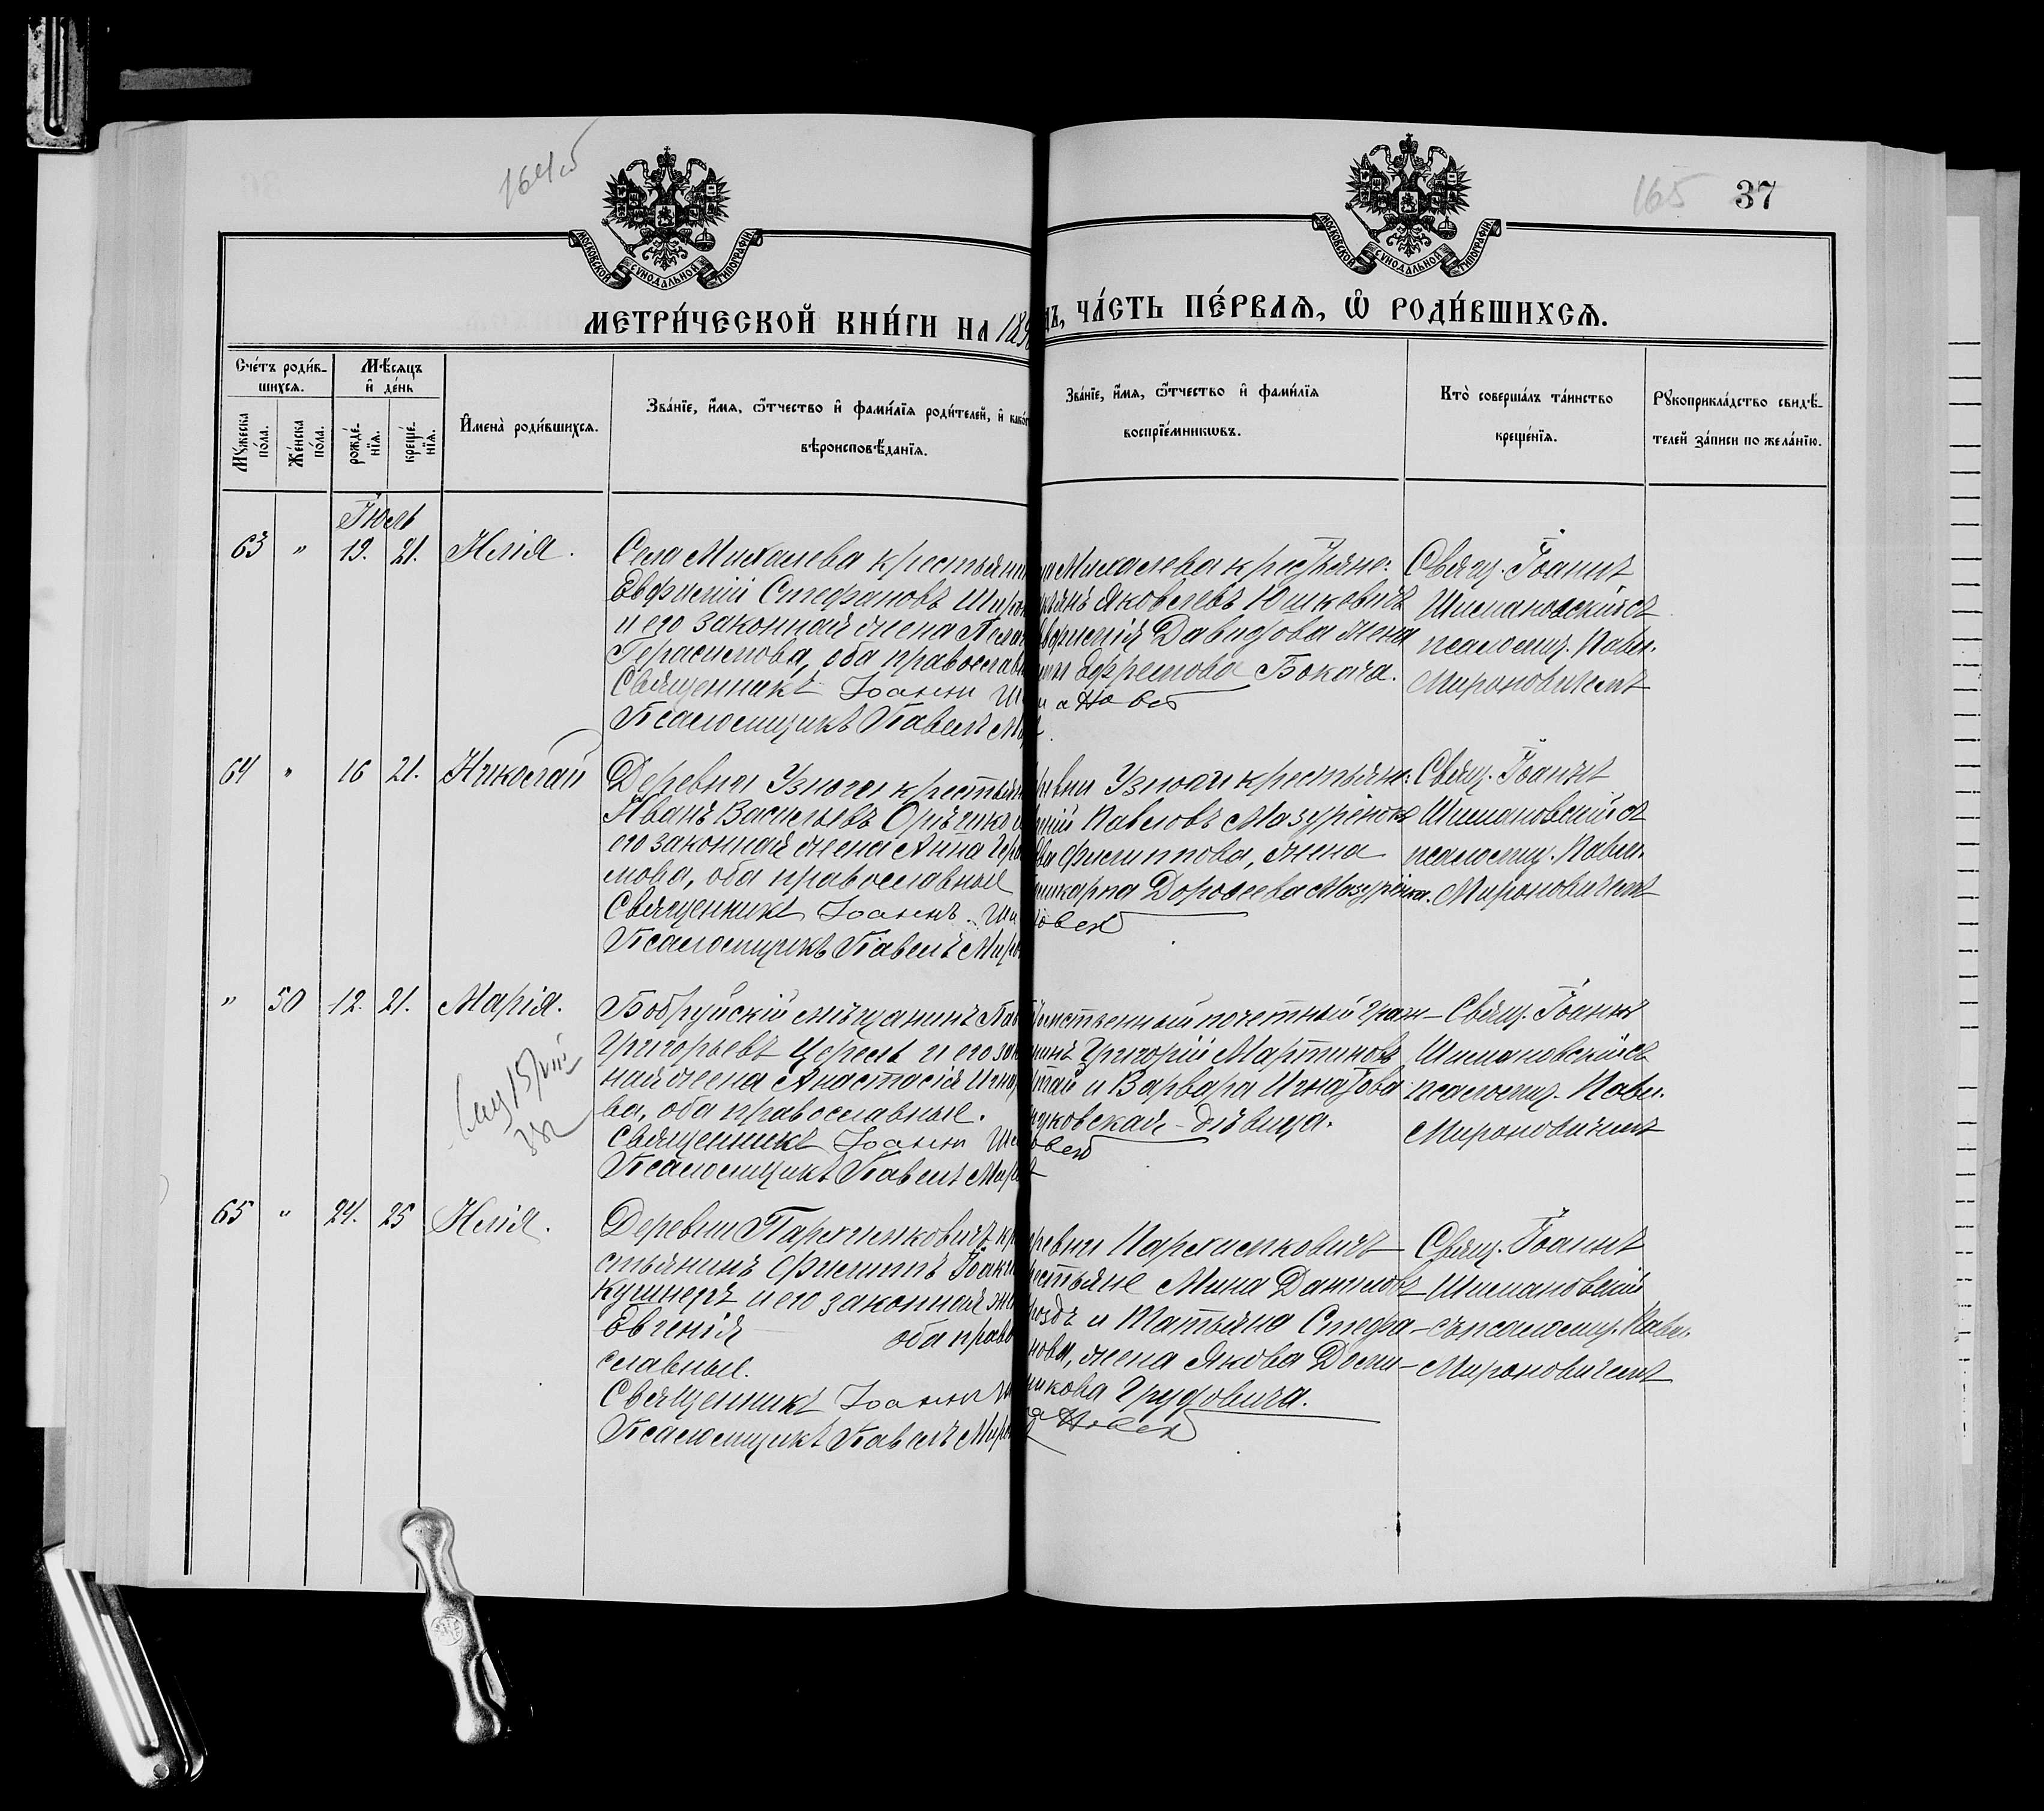 164об
165
37
МОСКОВСКОЙ СѴНОДАЛЬНОЙ ТИПОГРАФІИ
МОСКОВСКОЙ СѴНОДАЛЬНОЙ ТИПОГРАФІИ
МЕТРИ́ЧЕСКОЙ КНИ́ГИ НА 189
ДЪ, ЧА́СТЬ ПЕ́РВАѦ, Ѡ РОДИ́ВШИХСѦ.
Сче́тъ роди́в-
шихсѧ.
Мѣ́сѧцъ
и де́нь
Мꙋжеска
по́ла.
Же́нска
по́ла.
рожде́-
нїѧ.
креще́-
нїѧ.
И҆мена̀ роди́вшихсѧ.
Зва́нїе, и҆́мѧ, ѻ҆́тчество и҆ фами́лїѧ роди́телей, и҆ како́г
вѣроисповѣ́данїѧ.
Зва́нїе, и҆́мѧ, ѻ҆́тчество и҆ фами́лїѧ
воспрїе́мникѡвъ.
Кто̀ соверша́лъ та́инство
креще́нїѧ.
Рꙋкоприкла́дство свидѣ́-
телей за́писи по жела́нїю.
Іюль
63 " 19. 21. Илія.
Села Михалева крестьянин
Евфимій Стефановъ Широ
и его законная жена Пела
Герасимова, оба православ
Священникъ Іоаннъ Ши
Псаломщикъ Павелъ М
Михалева крестьяне:
Яковлевъ Юшкевичъ
Давидова жена
Ефремова Бокача.
Свящ. Іоаннъ
Шимановскій съ
псаломщ. Павл.
Мироновичемъ
64 " 16 21. Николай
Деревни Узноги крестьян
Иванъ Васильевъ
его законная жена Анна
мова, оба православные
Священникъ Іоаннъ Ши
Псаломщикъ Павелъ Миро
ревни Узноги крестьяне:
Павловъ Мазуренко
Филиппова, жена
Поликарпа Дорофеева Мазуренка.
Свящ. Іоаннъ
Шимановскій съ
псаломщ. Павл.
Мироновичемъ
" 50 12. 21. Марія.
Бобруйскій мѣщанинъ Пав
Григорьевъ Церель и его зак
ная жена Анастасія Игна
ва, оба православные.
Священникъ Іоаннъ Ши
Псаломщикъ Павелъ Миро
томственный почетный граж-
нинъ Григорій Мартиновъ
и Варвара Игнатова
дѣвица.
Свящ. Іоаннъ
Шимановскій съ
псаломщ. Павл.
Мироновичемъ
65 " 24. 25 Илія.
Деревни Пархимковичъ кр
стьянинъ Филиппъ Іоаки
Кушнеръ и его законная же
Евгенія оба право
славные.
Священникъ Іоаннъ Ши
Псаломщикъ Павелъ Миро
ревни Пархимковичъ
рестьяне Мина Даниловъ
роздъ и Татьяна Стефа-
нова, жена Якова Доми-
никова Грудовича.
Свящ. Іоаннъ
Шимановскій
съ псаломщ. Павл.
Мироновичемъ